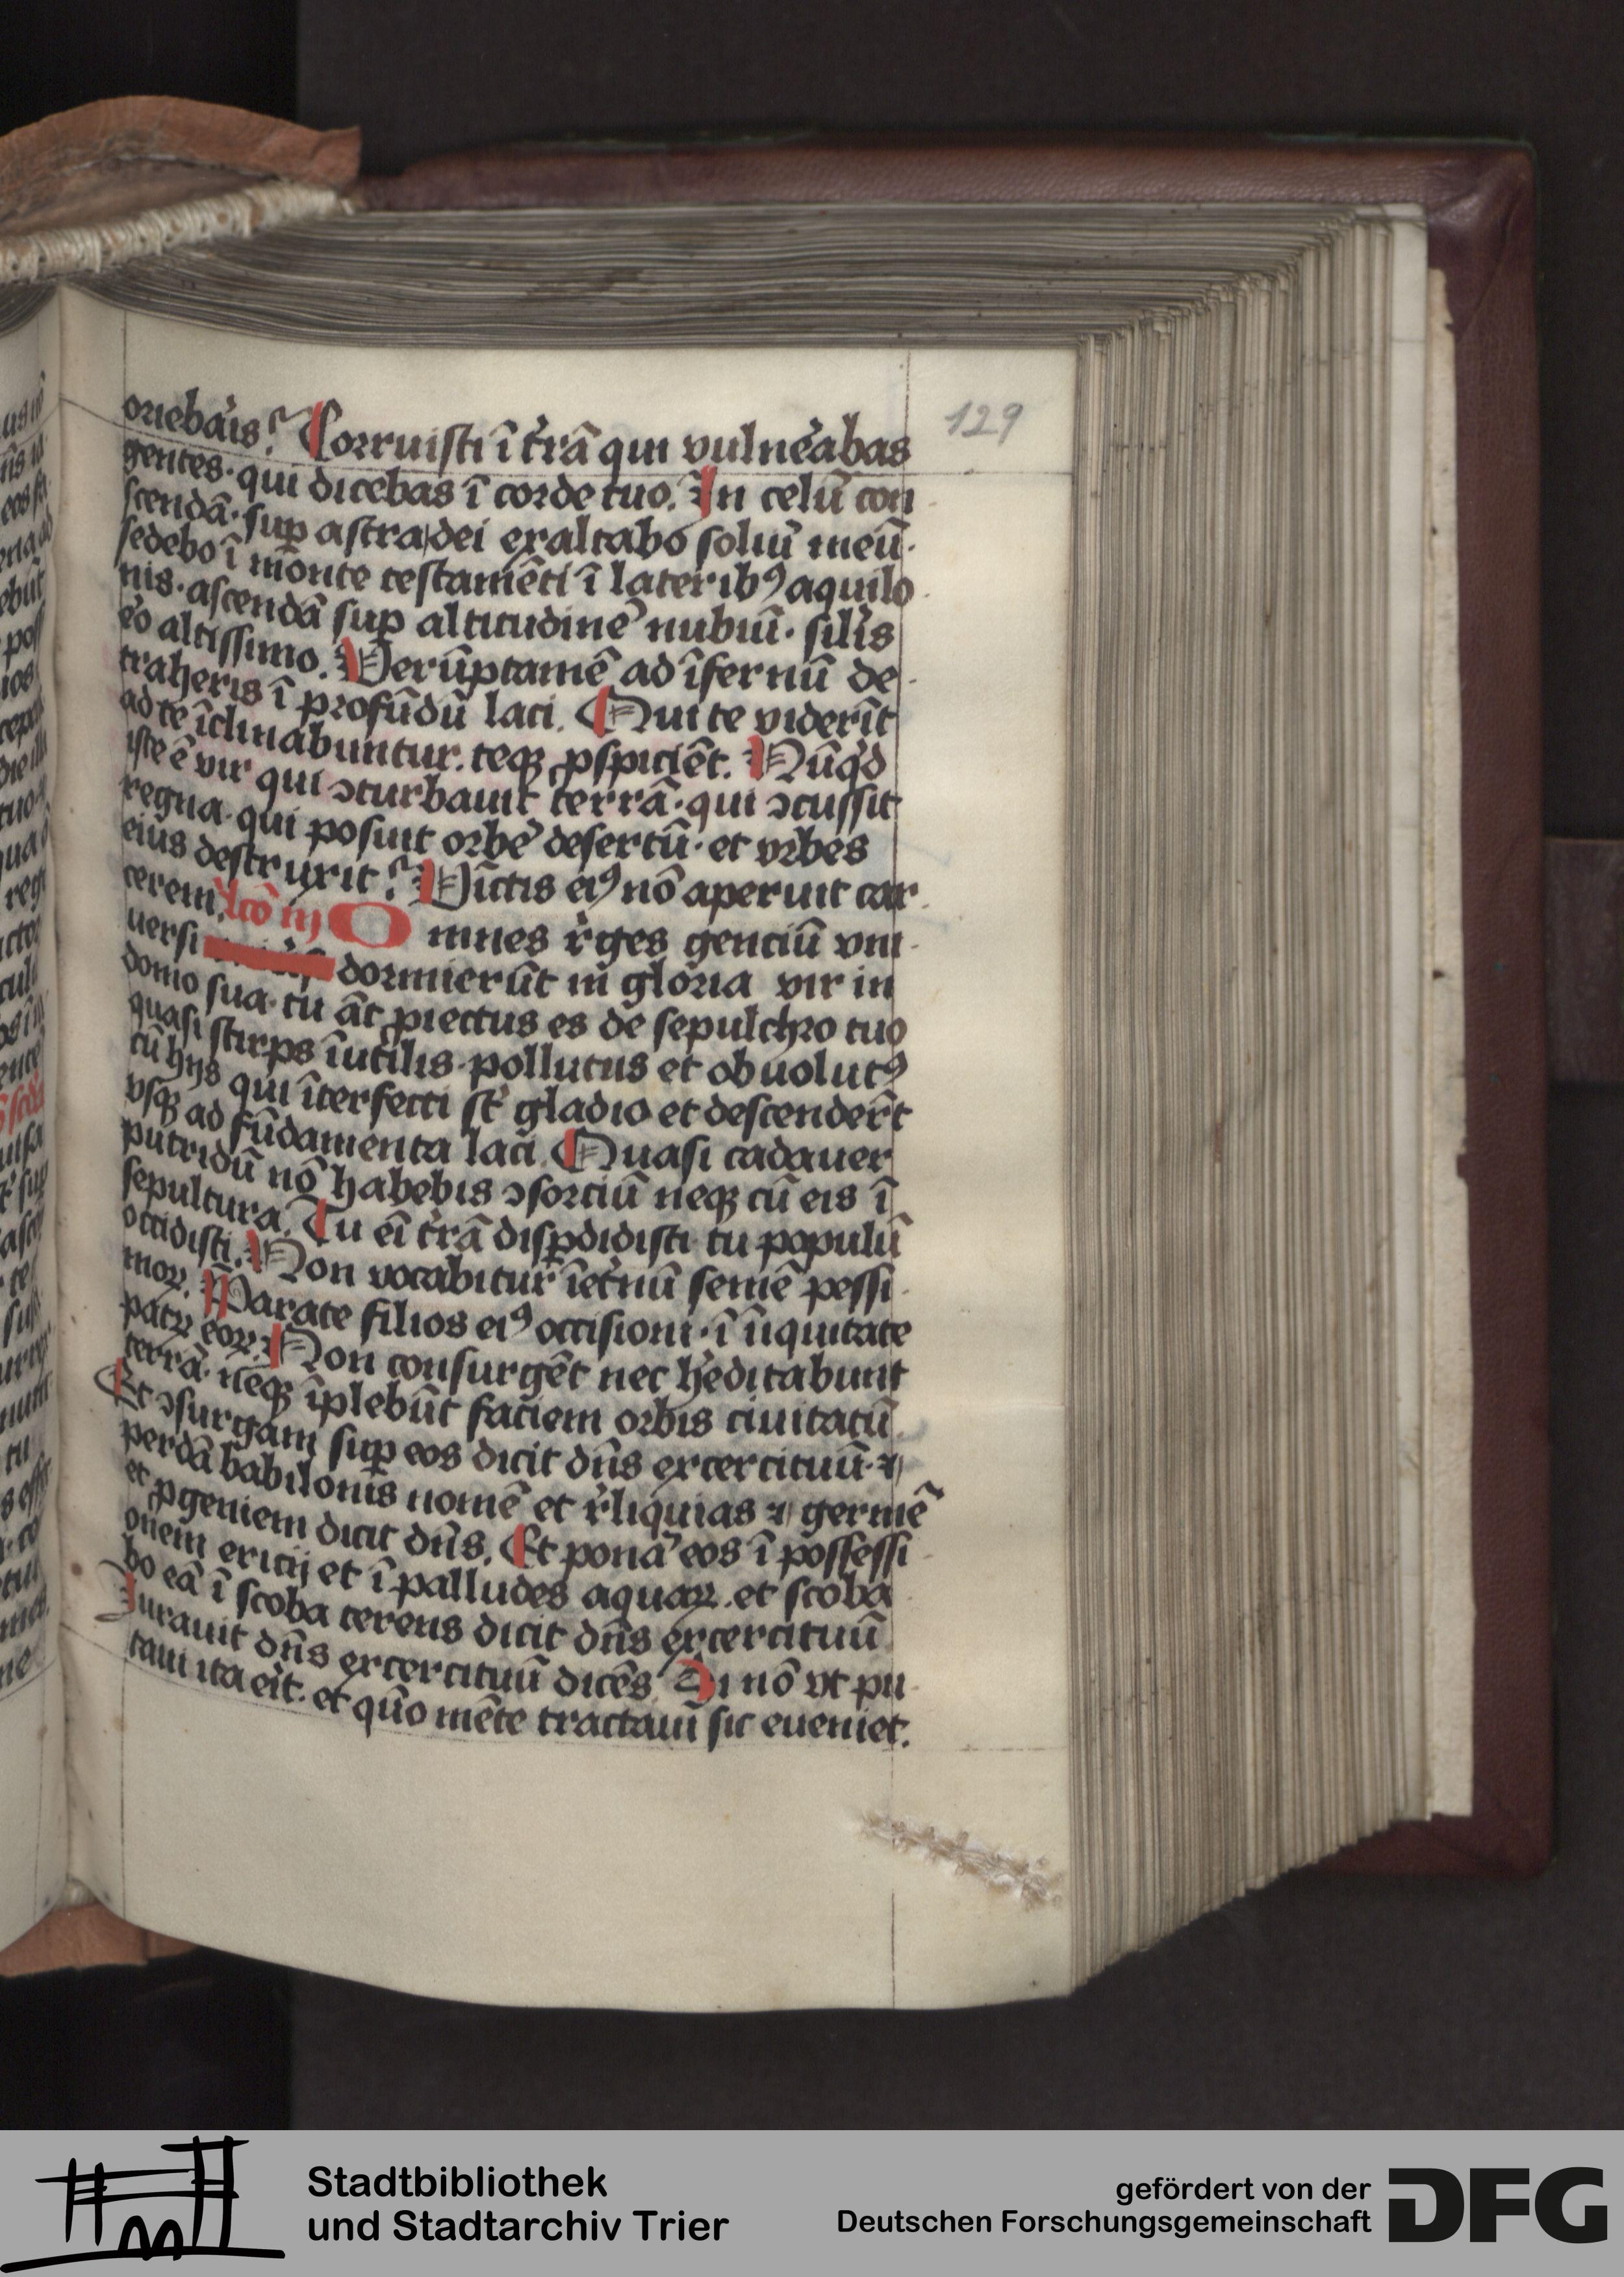 129
oriebaris? Corruisti ī t͛rā qui vulne͛abas
gentes· qui dicebas ī corde tuo. In celū con
scendā· sup̱ astra dei exaltabo soliū meū·
sedebo ī monte testamēti ī laterib⁹ aquilo
nis· ascendā sup̱ altitudinē nubiū· sil̓is
e͛o altissimo. Verūptamē ad īfernū de
traheris ī profūdū laci. Qui te viderīt
ad te īclinabuntur. teqꝫ ꝓspiciēt. Nūqͥd
iste ē vir qui ꝯturbauit terrā· qui ꝯcussit
regna· qui posuit orbē desertū· et vrbes
eius destruxit? Vīctis ei⁹ nō aperuit car
cerem. lcō iij Omnes r͛ges genciū vni
uersi dormierūt in gloria vir in
domo sua· tu āt ꝓiectus es de sepulchro tuo
quasi stirps īutilis· pollutus et obuolut⁹
cū hijs qui īterfecti st̄ gladio et descender̄t
vsqꝫ ad fūdamenta laci. Quasi cadauer
putridū nō habebis ꝯsorciū neqꝫ cū eis ī
sepultura. Tu eī t͛rā disꝑdidisti tu populū
occidisti. Non vocabitur īet͛nū semē pessi
moꝝ. Parate filios ei⁹ occisioni· ī iniquitate
patꝝ eoꝝ. Non consurgēt nec he͛ditabunt
terrā· neqꝫ īplebūt faciem orbis ciuitatū
Et ꝯsurgam sup̱ eos dicit dn̄s excercituū· ⁊
perdā babilonis nomē et r͛liquias ⁊ germē
et ꝓgeniem dicit dn̄s. Et ponā eos ī possessi
onem ericij et ī palludes aquaꝝ· et scoba
bo eā ī scoba terens dicit dn̄s excercituū
Iurauit dn̄s excercituū dicēs Si nō vt pu
taui ita e͛it· et quō mēte tractaui sic eueniet.
Stadtbibliothek
und Stadtarchiv Trier
gefördert von der
Deutschen Forschungsgemeinschaft
DFG